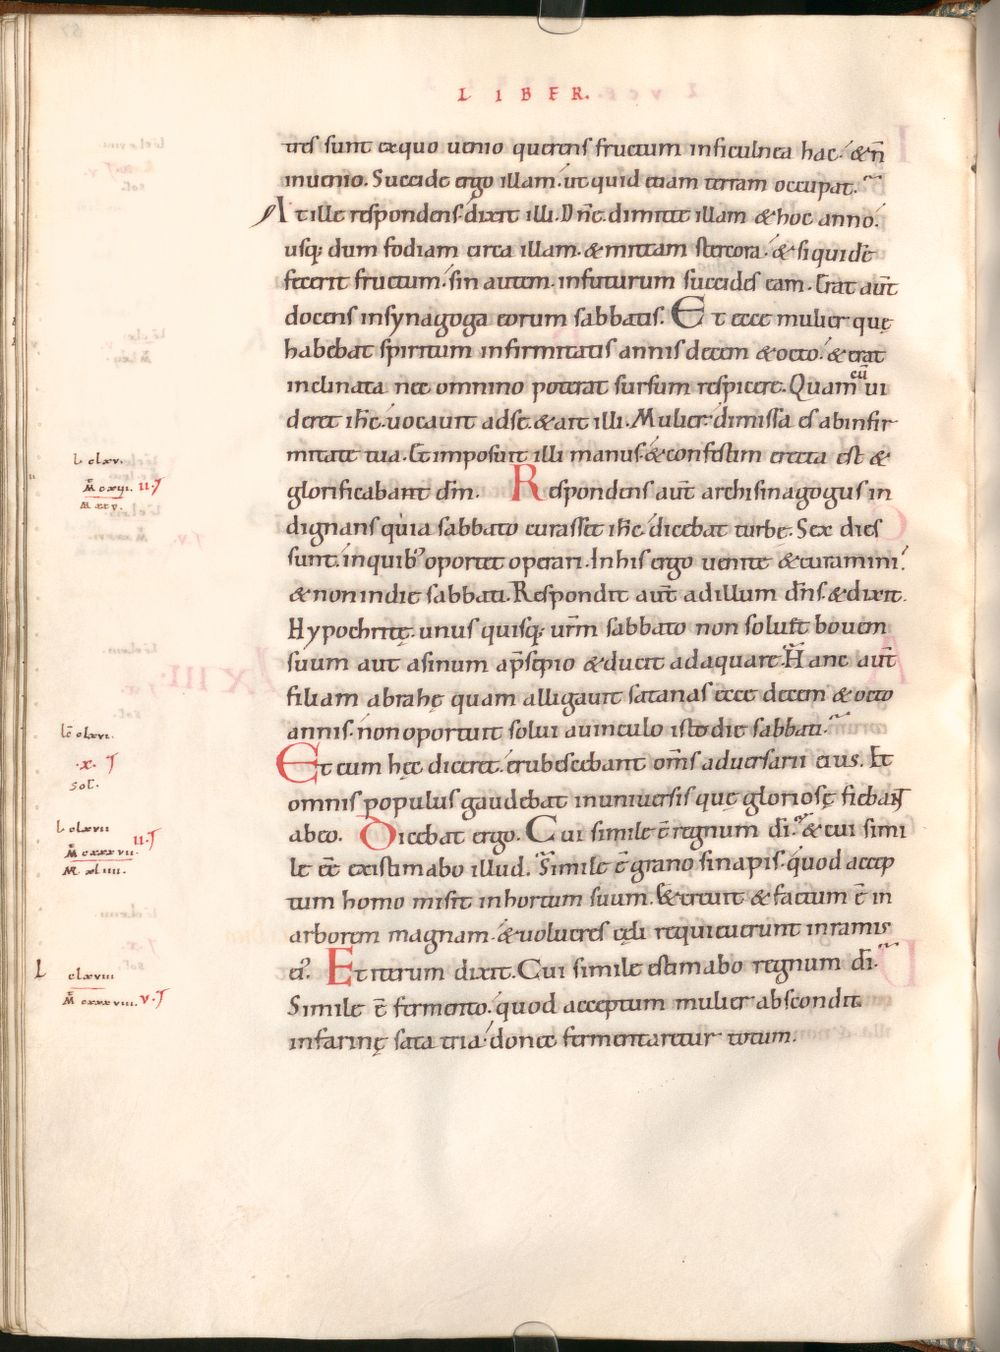 LIBER.
tres sunt exquo uenio querens fructum inficulnea hac. & n̄
inuenio. Succide ergo illam. ut quid etiam terram occupat.
At ille respondens dixit illi. Dn̄e. dimitte illam & hoc anno.
usq; dum fodiam circa illam. & mittam stercora. & siquidē
fecerit fructum. sin autem. infuturum succides eam. Erat aut̄
docens insynagoga eorum sabbatis. Et ecce mulier quę
habebat spiritum infirmitatis annis decem & octo. & erat
inclinata nec omnino poterat sursum respicere. Quam cū ui
deret ih̄c. uocauit adse. & ait illi. Mulier. dimissa es abinfir
mitate tua. Et imposuit illi manus. & confestim erecta est &
glorificabant dm̄. Respondens aut̄ archisinagogus in
dignans quia sabbato curasset ih̄c. dicebat turbę. Sex dies
sunt. inquib' oportet operari. Inhis ergo uenite & curamini.
& nonindie sabbati. Respondit aut̄ adillum dn̄s. & dixit.
Hypochritę. unus quisq; ur̄m sabbato non soluit bouem
suum aut asinum ap̄sepio & ducit adaquare. Hanc aut̄
filiam abrahę quam alligauit satanas ecce decem & octo
annis. nonoportuit solui auinculo istodie sabbati.
Et cum hęc diceret. erubescebant om̄s aduersarii eius. Et
omnis populus gaudebat inuniuersis quę gloriosę fiebant
abeo. Dicebat ergo. Cui simile ē regnum dī. & cui simi
le eē existimabo illud. Simile ē grano sinapis. quod accep
tum homo misit inhortum suum. & creuit & factum ē in
arborem magnam. & uolucres cęli requieuerunt inramis
ei'. Et iterum dixit. Cui simile estimabo regnum dī.
Simile ē fermento. quod acceptum mulier abscondit
infarinę sata tria. donec fermentaretur totum.
L clxv.
M̄ cxiii. II.
M xxv.
Lc̄ clxvi.
.x.
sol̄.
L clxvii
M̄ cxxxvii. II.
M. xliiii.
L clxviii
M̄ cxxxviii. V.